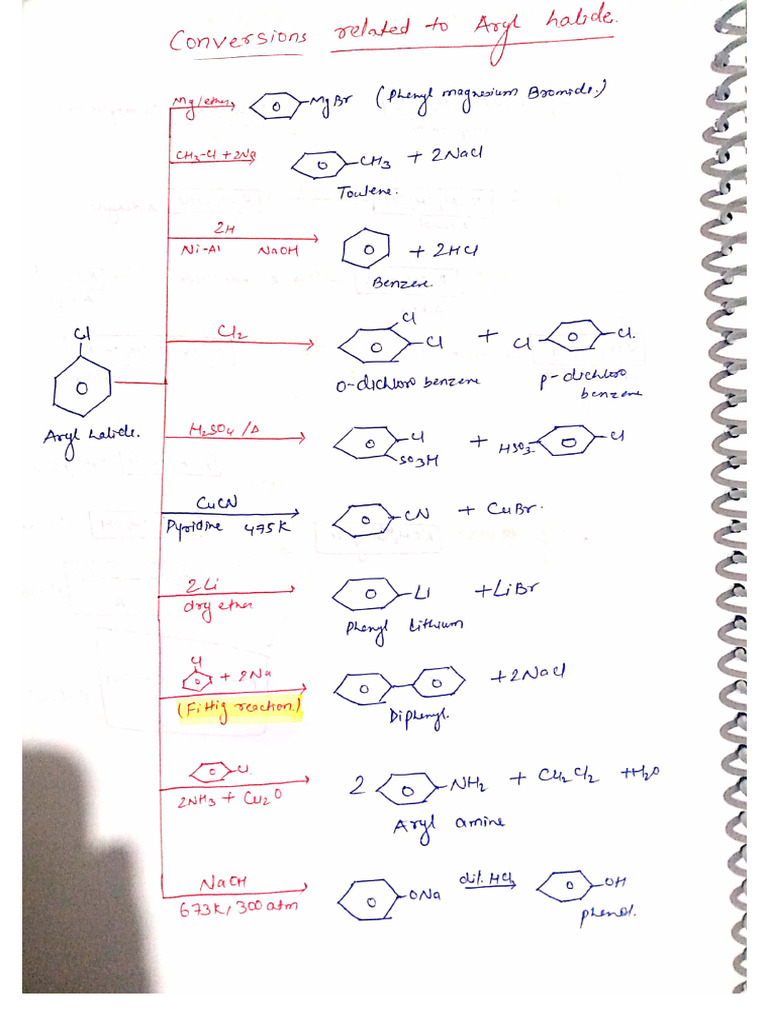 Conversions related to Aryl halide.
Mg/ether MgBr (Phenyl magnesium Bromide.)
CH3-Cl + 2Na CH3 + 2NaCl
Toulene.
2H
Ni-Al NaOH + 2HCl
Benzene
Cl
Cl Cl2 Cl + Cl Cl.
o-dichloro benzene p-dichloro
benzene
Aryl halide. H2SO4/Δ Cl + HSO3 Cl
SO3H
CuCN CN + CuBr.
Pyridine 475K
2Li Li + LiBr
dry ether
Phenyl Lithium
Cl
+ 2Na + 2NaCl
(Fittig reaction.) Diphenyl.
Cl
2NH3 + Cu2O 2 NH2 + Cu2Cl2 + H2O
Aryl amine
NaOH ONa dil. HCl OH
673K, 300 atm phenol.